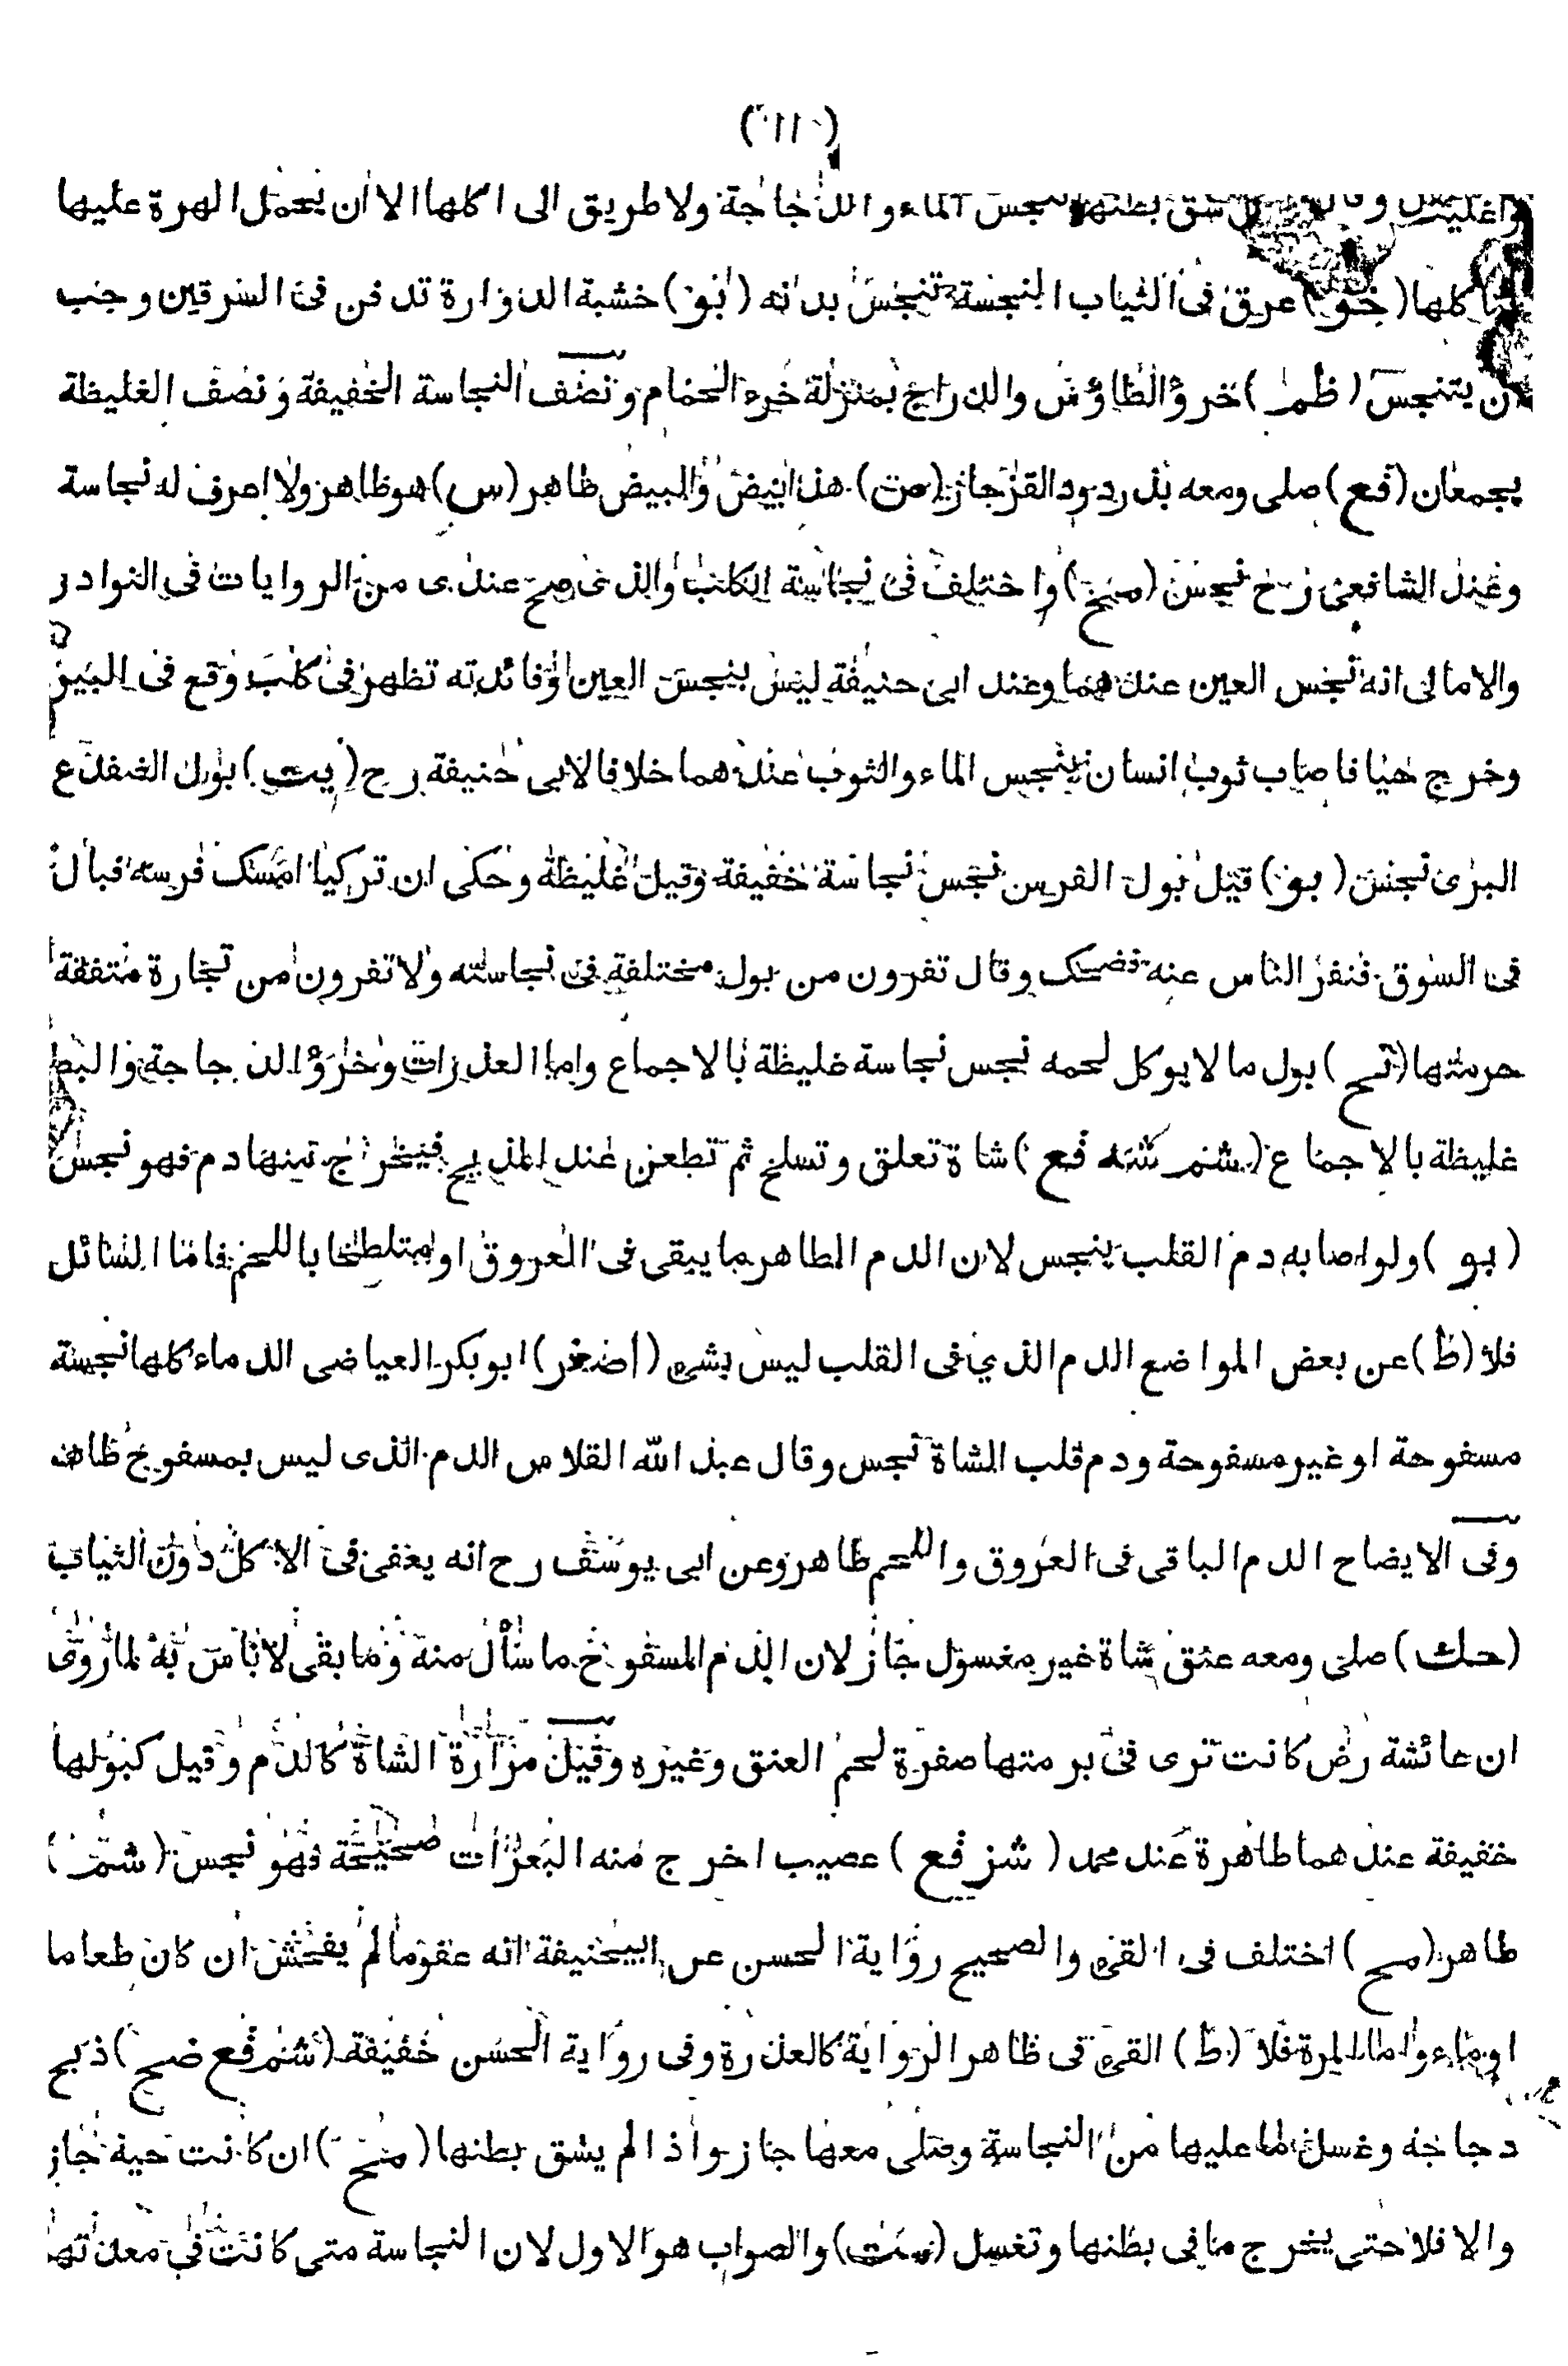 (١١)
واغليت وقال شق بطنها تنجس الماء والدجاجة ولا طريق الى اكلها الا ان يحمل الهرة عليها
كلها (خنو) عرق فى الثياب النجسة تنجس بدنه (بو) خشبة الدوارة تدفن فى السرقين وجب
ان يتنجس (ظم) خرؤ الطاؤس والدراج بمنزلة خرء الحمام ونصف النجاسة الخفيفة ونصف الغليظة
يجمعان (فع) صلى ومعه بذر دود القز جاز (مت) هذا بيض والبيض طاهر (س) هو طاهر ولا اعرف له نجاسة
وعند الشافعى رح نجس (منح) واختلف فى نجاسة الكلب والذى صح عندى من الروايات فى النوادر
والامالى انه نجس العين عندهما وعند ابى حنيفة ليس بنجس العين وفائدته تظهر فى كلب وقع فى البير
وخرج حيا فاصاب ثوب انسان ينجس الماء والثوب عندهما خلافا لابى حنيفة رح (يت) بول الضفدع
البرى نجس (بو) قيل بول الفرس نجس نجاسة خفيفة وقيل غليظة وحكى ان تركيا امسك فرسه فبال
فى السوق فنفر الناس عنه فضحك وقال تفرون من بول مختلفة فى نجاسته ولا تفرون من تجارة متفقة
حرمتها (تح) بول ما لا يوكل لحمه نجس نجاسة غليظة بالاجماع واما العذرات وخرؤ الدجاجة والبط
غليظة بالاجماع (شنم شته فع) شاة تعلق وتسلخ ثم تطعن عند المذبح فيخرج منها دم فهو نجس
(بو) ولو اصابه دم القلب ينجس لان الدم الطاهر ما يبقى فى العروق او متلطخا باللحم فاما السائل
فلا (ظ) عن بعض المواضع الدم الذي فى القلب ليس بشى (اضغر) ابو بكر العياضى الدماء كلها نجسة
مسفوحة او غير مسفوحة ودم قلب الشاة نجس وقال عبد الله القلاس الدم الذى ليس بمسفوح طاهر
وفى الايضاح الدم الباقى فى العروق واللحم طاهر وعن ابى يوسف رح انه يعفى فى الاكل دون الثياب
(حك) صلى ومعه عنق شاة غير مغسول جاز لان الدم المسفوح ما سال منه وما بقى لا باس به لما روى
ان عائشة رض كانت ترى فى برمتها صفرة لحم العنق وغيره وقيل مرارة الشاة كالدم وقيل كبولها
خفيفة عندهما طاهرة عند محمد (شز فع) عصيب اخرج منه البعرات صحيحة فهو نجس (شم)
طاهر (مح) اختلف فى القى والصحيح رواية الحسن عن ابيحنيفة انه عفو ما لم يفحش ان كان طعاما
او ماء واما المرة فلا (ط) القى فى ظاهر الرواية كالعذرة وفى رواية الحسن خفيفة (شنم فع ضح) ذبح
دجاجه وغسل ما عليها من النجاسة وصلى معها جاز واذا لم يشق بطنها (منح) ان كانت حية جاز
والا فلا حتى يخرج ما فى بطنها وتغسل (ست) والصواب هو الاول لان النجاسة متى كانت فى معدنها